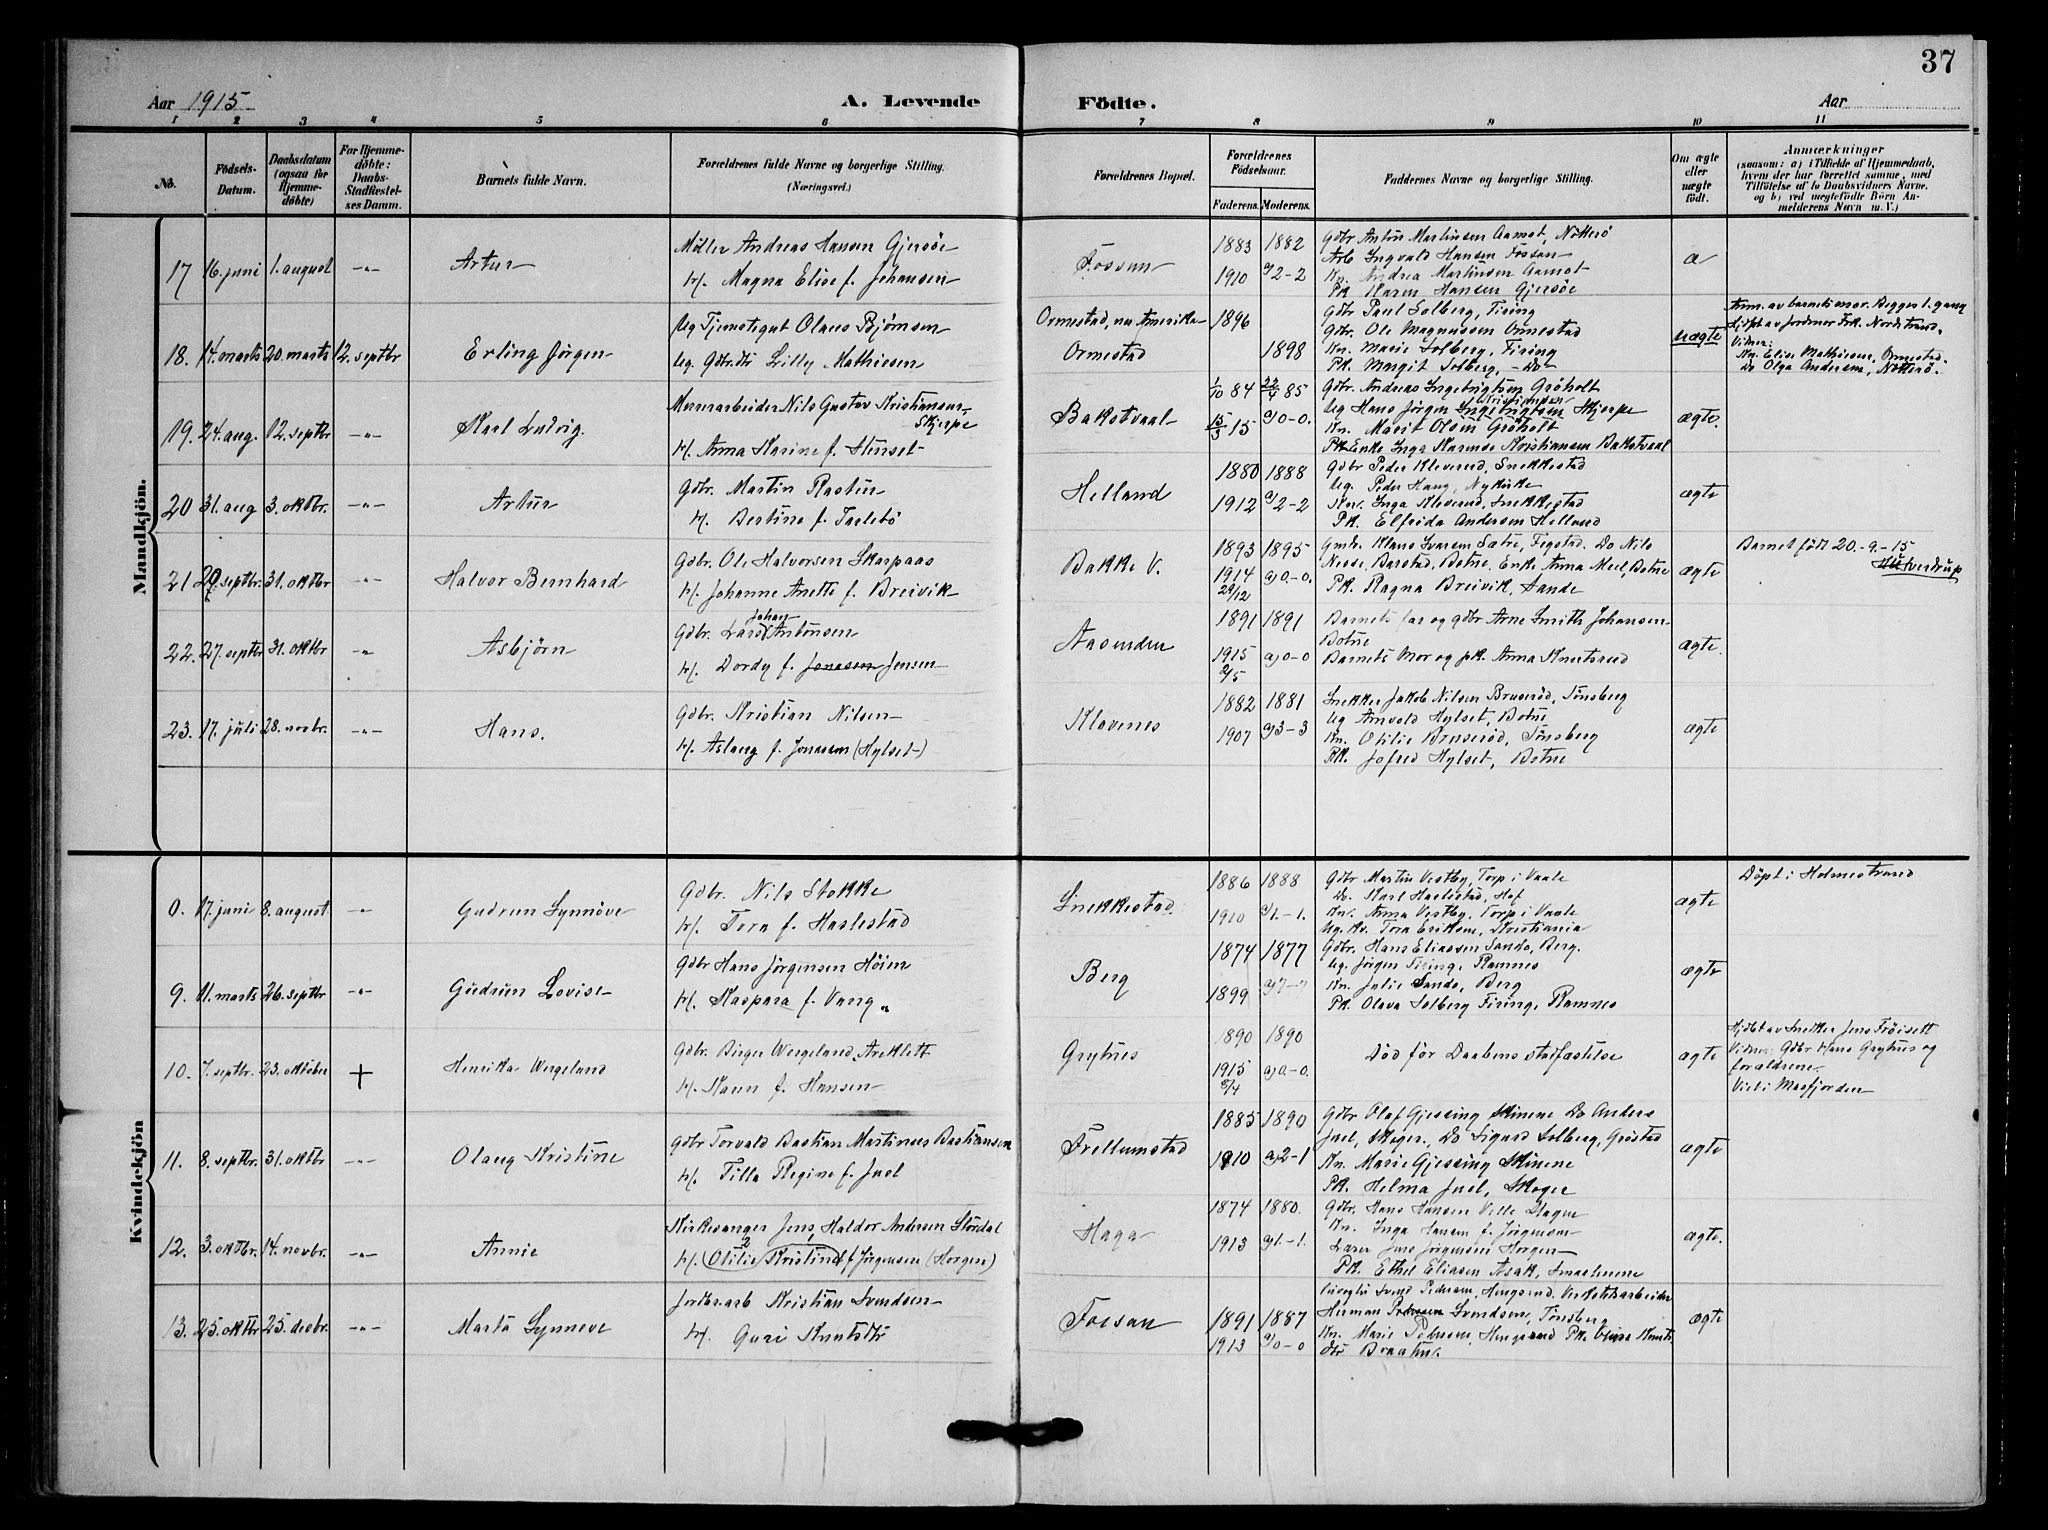 37
Aar 1915
A. Levende
Födte.
Aar
1 2 3 4 5 6 7 8 9 10 11
No.
Födsels-Datum.
Daabsdatum (ogsaa for Hjemme-döbte)
For Hjemme-döbte: Daabs-Stadfæstel-ses Datum.
Barnets fulde Navn.
Forældrenes fulde Navne og borgerlige Stilling. (Næringsvei.)
Forældrenes Bopæl.
Forældrenes Födselsaar.
Faderens. Moderens.
Faddernes Navne og borgerlige Stilling.
Om ægte eller uægte födt.
Anmærkninger
(saasom: a) i Tilfælde af Hjemmedaab,
hvem der har forrettet samme, med
Tilföielse af to Daabsvidners Navne,
og b) ved uægtefödte Börn An-
melderens Navn m. V.)
Mandkjön.
17 16. juni 1. august -"- Artur
Møller Andreas Hansen Gjersöe
H/. Magna Elise f. Johansen
Fossan
1883 1882
1910 a) 2-2
Gdbr Anton Martinsen Aamot, Nötterö
Arb Ingvald Hansen Fossan
Kn. Andrea Martinsen Aamot
Pk Karen Hansen Gjersöe
a
18. 14. marts 20. marts 12. septbr Erling Jörgen
Ug Tjenstegut Olaus Bjørnsen
Ug. Gdbr.dtr Lilly Mathiesen
Ormestad, nu Amerika
Ormestad
1896
1898
Gdbr Paul Solberg, Firing
Gdbr. Ole Magnussen Ormestad
Kn. Marie Solberg, Firing
Pk. Margit Solberg, -Do-
uægte
Anm. av barnets mor. Begges 1. gang
Hjdpt av Jordmor Frk. Nordstrand.
Vidner:
Kn. Elise Mathiesen, Ormestad.
Do Olga Andersen, Nötterö.
19. 24. aug. 12. septbr -"- Karl Ludvig.
Murerarbeider Nils Gustav Kristiansen
Skjerpe
H/. Anna Karine f. Stenset
Bakstvaal
1/10 84 22/4 85
15/3 15 a) 0-0.
Gdbr. Andreas Ingebrigtsen Gröholt
Kristiansen
Ug Hans Jörgen Ingebrigtsen Skjerpe
Kn. Marit Olsen Gröholt
Pk Enke Inga Karense Kristiansen Bakstvaal
ægte.
20 31. aug 3. oktbr. -"- Artur
Gdbr. Martin Rastén
H/. Bertine f. Taslebö
Helland
1880 1888
1912 a) 2-2
Gdbr Peder Kleverud, Snekkestad
Ug. Peder Haug, Nykirke
Kn. Inga Kleverud, Snekkestad
Pk. Elfrida Andersen Helland
ægte
21 20. septbr. 31. oktbr -"- Halvor Bernhard
Gdbr. Ole Halvorsen Skarpaas
H/. Johanne Anette f. Breivik
Bakke V.
1893 1895
1914 a) 0-0.
29/12
Gmb. Klaus Ivarsen Sætre, Fegstad. Do Nils
Nesse, Barstad, Botne, Enk. Anna Meel, Botne
Pk. Ragna Breivik, Sande
ægte
Barnet född 20.-9.-15
22. 27. septbr 31. oktbr " Asbjörn
Johan
Gdbr. Lars Antonsen
H/. Dordy f. Jonasen Jensen
Aasenden
1891 1891
1915 a) 0-0
2/5
Barnets far og gdbr Arne Smith Johansen
Botne
Barnets Mor og pk. Anna Knutsrud
ægte.
23. 17. juli 28. novbr. -"- Hans.
Gdbr. Kristian Nilsen
H/. Aslaug f. Jonassen (Hylset)
Klavenes
1882 1881
1907 a) 3-3
Snekker Jakob Nilsen Bruseröd, Tönsberg
Ug Arnvald Hylset, Botne
Kn. Otilie Bruseröd, Tönsberg
Pk. Jofrid Hylset, Botne
ægte
Kvindekjön
0. 17. juni 8. august -"- Gudrun Synnöve
Gdbr. Nils Stokke
H/. Tora f. Haslestad
Snekkestad.
1886 1888
1910 a) 1-1.
Gdbr Martin Vestby, Torp i Vaale
Do. Karl Haslestad, Hof
Kn. Anna Vestby, Torp i Vaale
Ug. kv. Tora Eriksen, Kristiania
ægte
Döpt i Holmestrand
9. 11. marts 26. septbr -"- Gudrun Lovise
Gdbr Hans Jörgensen Höien
H/. Kaspara f. Vang
Berg
1874 1877
1899 a) 7-7
Gdbr. Hans Eliassen Sando, Berg.
Ug. Jörgen Firing, Ramnes
Kn. Julie Sando, Berg
Pk. Olava Solberg Firing, Ramnes
ægte
10. 7. septbr. 23. oktober + Henrika Wergeland
Gdbr. Birger Wergeland Areklett
H/. Karen f. Hansen
Grytnes
1890 1890
1915 a) 0-0.
5/4
Död för Daabens stadfæstelse
ægte
Hjdbt av Snekker Jens Fröisett
Vidner: Gdbr Hans Grytnes og
forældrene.
Viet i Masfjorden
11. 8. septbr. 31. oktbr -"- Olaug Kristine
Gdbr Torvald Bastian Martinus Bastiansen
H/. Tilla Regine f. Juel
Frellumstad
1885 1890
1910 a) 2-1
Gdbr Olaf Gjessing Skinene Do Anders
Juel, Skoger. Do Sigurd Solberg, Gröstad
Kn. Marie Gjessing Skinene
Pk. Helma Juel, Skoger
ægte
12. 3. oktbr. 14. novbr. -"- Annie
Kirkesanger Jens Haldor Andersen Stördal
2
H/. (Otilie Kristine) f. Jörgensen (Horgen)
Haga
1874 1880.
1913 a) 1-1.
Gdbr. Hans Hansen Velle Slagen
Kn. Inga Hansen f. Jörgensen
Lærer Jens Jörgensen Horgen
Pk. Ethel Eliasen Asak, Smaalenene
ægte.
13. 25. oktbr 25. decbr. -"- Marta Synnöve
Jordbr.arb Kristian Svendsen
H/. Guri Knutsdtr
Fossan
1891 1887
1913 a) 0-0
Svend Pedersen, Hengsrud. Verkstedarbeider
Herman Svendsen, Tönsberg
Kn. Marie Petersen, Hengsrud Pk. Knuts
dtr Braaten.
ægte